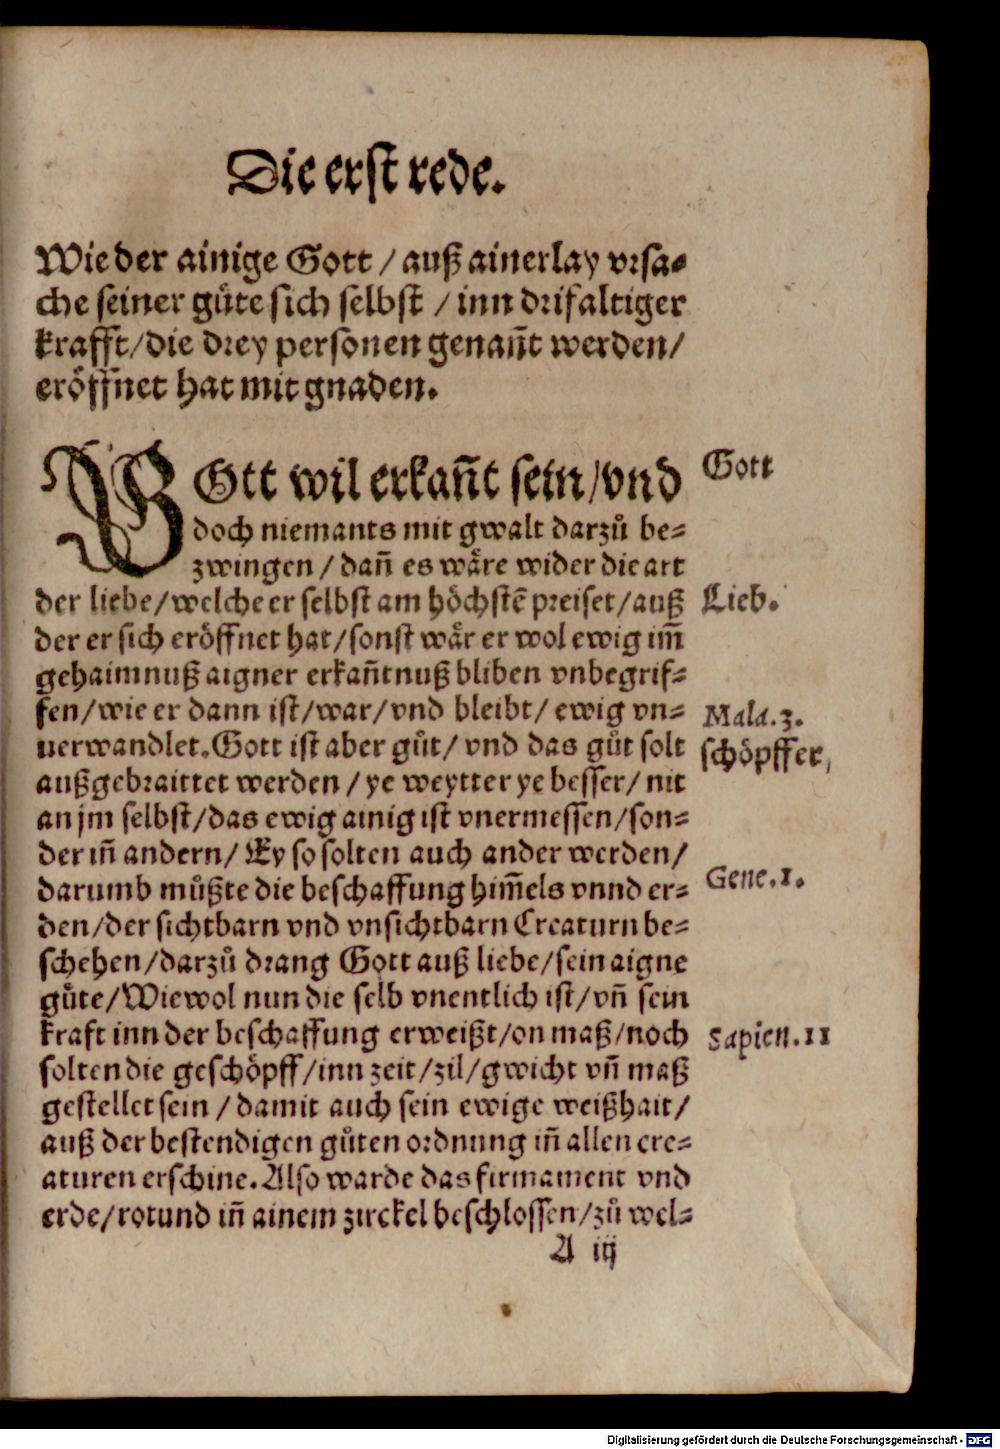 Die erst rede.
Wie der ainige Gott / auß ainerlay vrsa⸗
che seiner guͤte sich selbst / inn drifaltiger
krafft/die drey personen genañt werden/
eroͤffnet hat mit gnaden.
GOtt wil erkañt sein/vnd
doch niemants mit gwalt darzuͦ be⸗
zwingen / dañ es waͤre wider die art
der liebe/welche er selbst am hoͤchstē preiset/auß
der er sich eroͤffnet hat/sonst waͤr er wol ewig im̄
gehaimnuß aigner erkañtnuß bliben vnbegrif⸗
fen/wie er dann ist/war/vnd bleibt/ ewig vn⸗
uerwandlet. Gott ist aber guͦt/ vnd das guͦt solt
außgebraittet werden / ye weytter ye besser/ nit
an jm selbst/das ewig ainig ist vnermessen/son⸗
der iñ andern/ Ey so solten auch ander werden/
darumb muͤßte die beschaffung him̄els vnnd er⸗
den/der sichtbarn vnd vnsichtbarn Creaturn be⸗
schehen/darzuͦ drang Gott auß liebe/sein aigne
guͤte/Wiewol nun die selb vnentlich ist/vñ sein
kraft inn der beschaffung erweißt/on maß/noch
solten die geschoͤpff/inn zeit/zil/gwicht vñ maß
gestellet sein / damit auch sein ewige weißhait/
auß der bestendigen guͤten ordnung iñ allen cre⸗
aturen erschine. Also warde das firmament vnd
erde/rotund iñ ainem zirckel beschlossen/zuͦ wel⸗
A iij
Gott
Lieb.
Mala.3.
schoͤpffer,
Gene.1.
Sapien.11
Digitalisierung gefördert durch die Deutsche Forschungsgemeinschaft - DFG